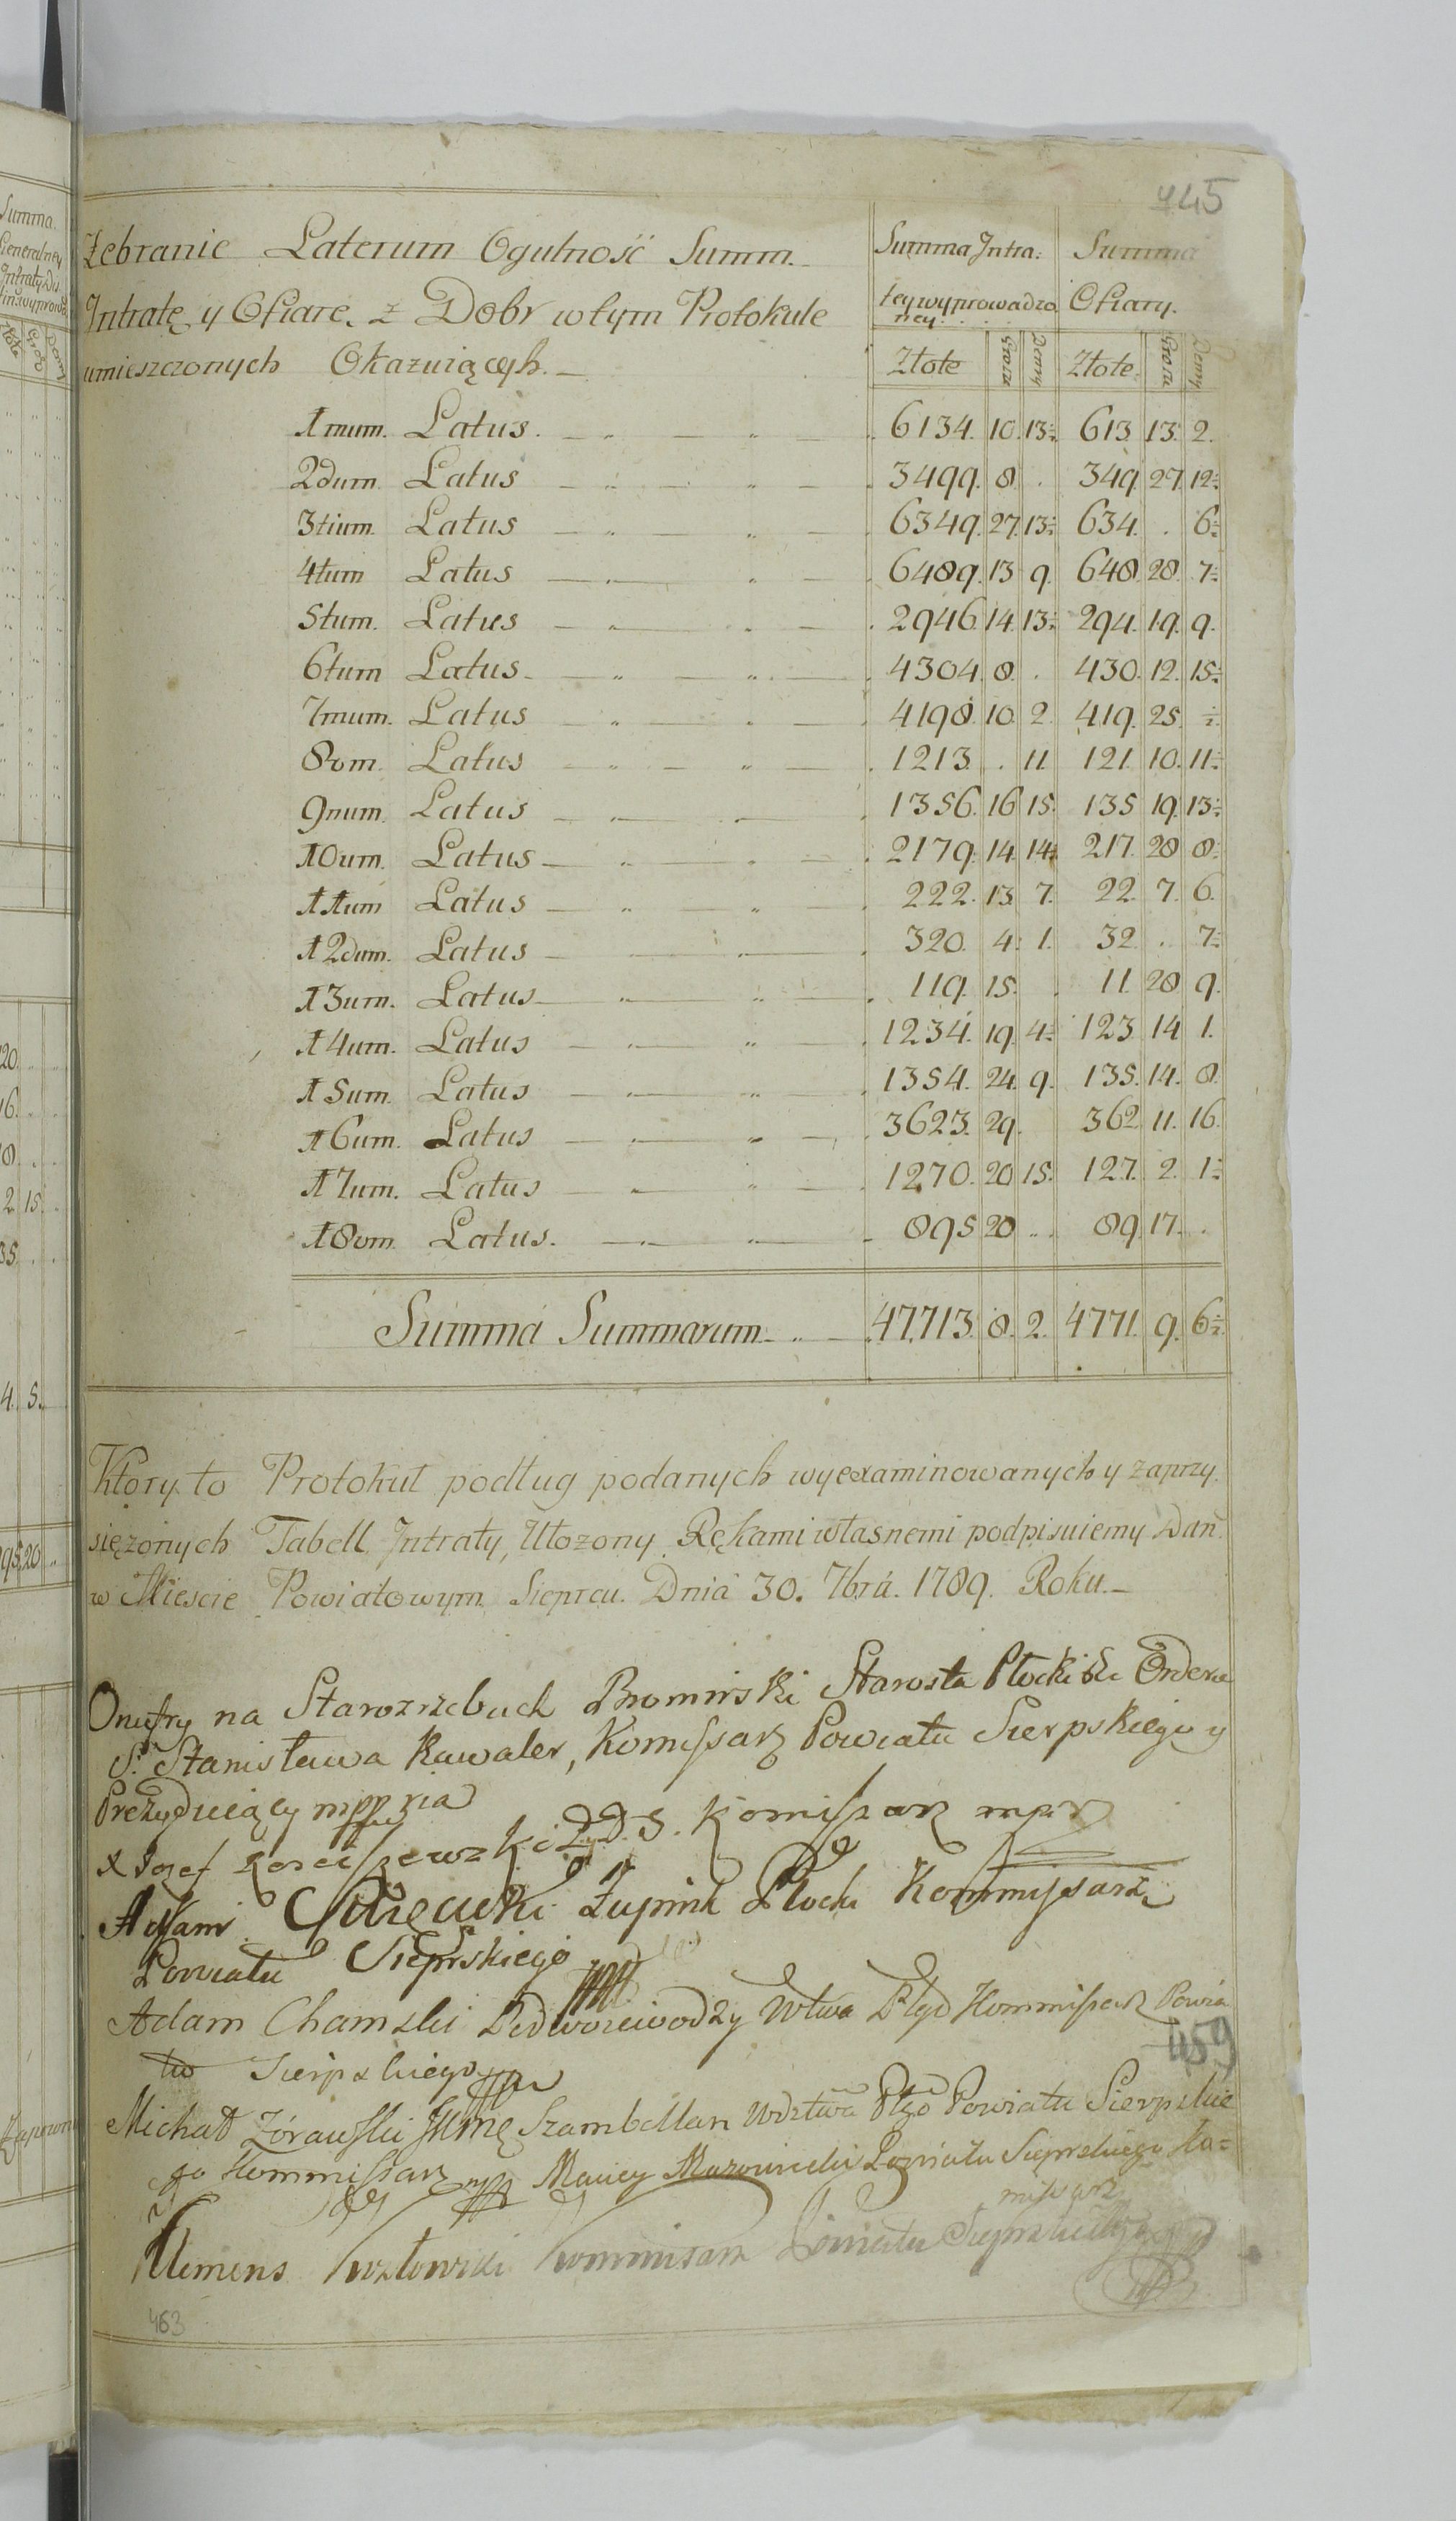 445
Zebranie Laterum Ogulność Summ.
Intratę y Ofiarę z Dobr w tym Protokule
umieszczonych Okazuiących.
Summa Intra: tey wyprowadzo ney Summa Ofiary.
Złote Grosze Deny Złote Grosze Deny
1mum. Latus. 6134. 10. 13½ 613. 13. 2.
2dum. Latus 3499. 8. . 349. 27. 12½
3tium. Latus 6349. 27. 13½ 634. . 6½
4tum Latus 6489. 13. 9. 648. 28. 7½
5tum. Latus 2946. 14. 13½ 294. 19. 9.
6tum Latus 4304. 8. . 430. 12. 15½
7mum. Latus 4198. 10. 2. 419. 25. ½
8vum. Latus 1213. . 11. 121. 10. 11½
9num. Latus 1356. 16. 15. 135. 19. 13½
10um. Latus 2179. 14. 14½ 217. 28. 8½
11um Latus 222. 13. 7. 22. 7. 6.
12dum. Latus 320. 4. 1. 32. . 7½
13um. Latus 119. 15. . 11. 28. 9.
14um. Latus 1234. 19. 4½ 123. 14. 1.
15um. Latus 1354. 24. 9. 135. 14. 8.
16um. Latus 3623. 29. 362. 11. 16.
17um. Latus 1270. 20. 15. 127. 2. 1½
18vum. Latus. 895. 20. . 89. 17. .
Summa Summarum 47,713. 8. 2. 4771. 9. 6½
Ktory to Protokuł podług podanych wyexaminowanych y zaprzy
siężonych Tabell Intraty, Ułożony Rękami własnemi podpisuiemy Dan
w Mieście Powiatowym Sieprcu. Dnia 30. 7bra. 1789. Roku.
Onufry na Starozrzebach Bromirski Starosta Płocki Orderu
S. Stanisława Kawaler, Komissarz Powiatu Sierpskiego y
Prezyduiący mppria
X Jozef Komissarz mpr
Adam Żupnik Płocki Kommissarz
Powiatu Sieprskiego
Adam Chamski Podwoiewodzy Wtwa Płgo Kommissarz Powia
tu Sierpskiego
Michał Żórawski Szambellan Wdztwa Płgo Powiatu Sierpskie
go Kommissarz Maciey Mazowiecki Powiatu Sieprskiego Ko=
missarz
Klemens Kozłowski Kommisarz Powiatu
459
463